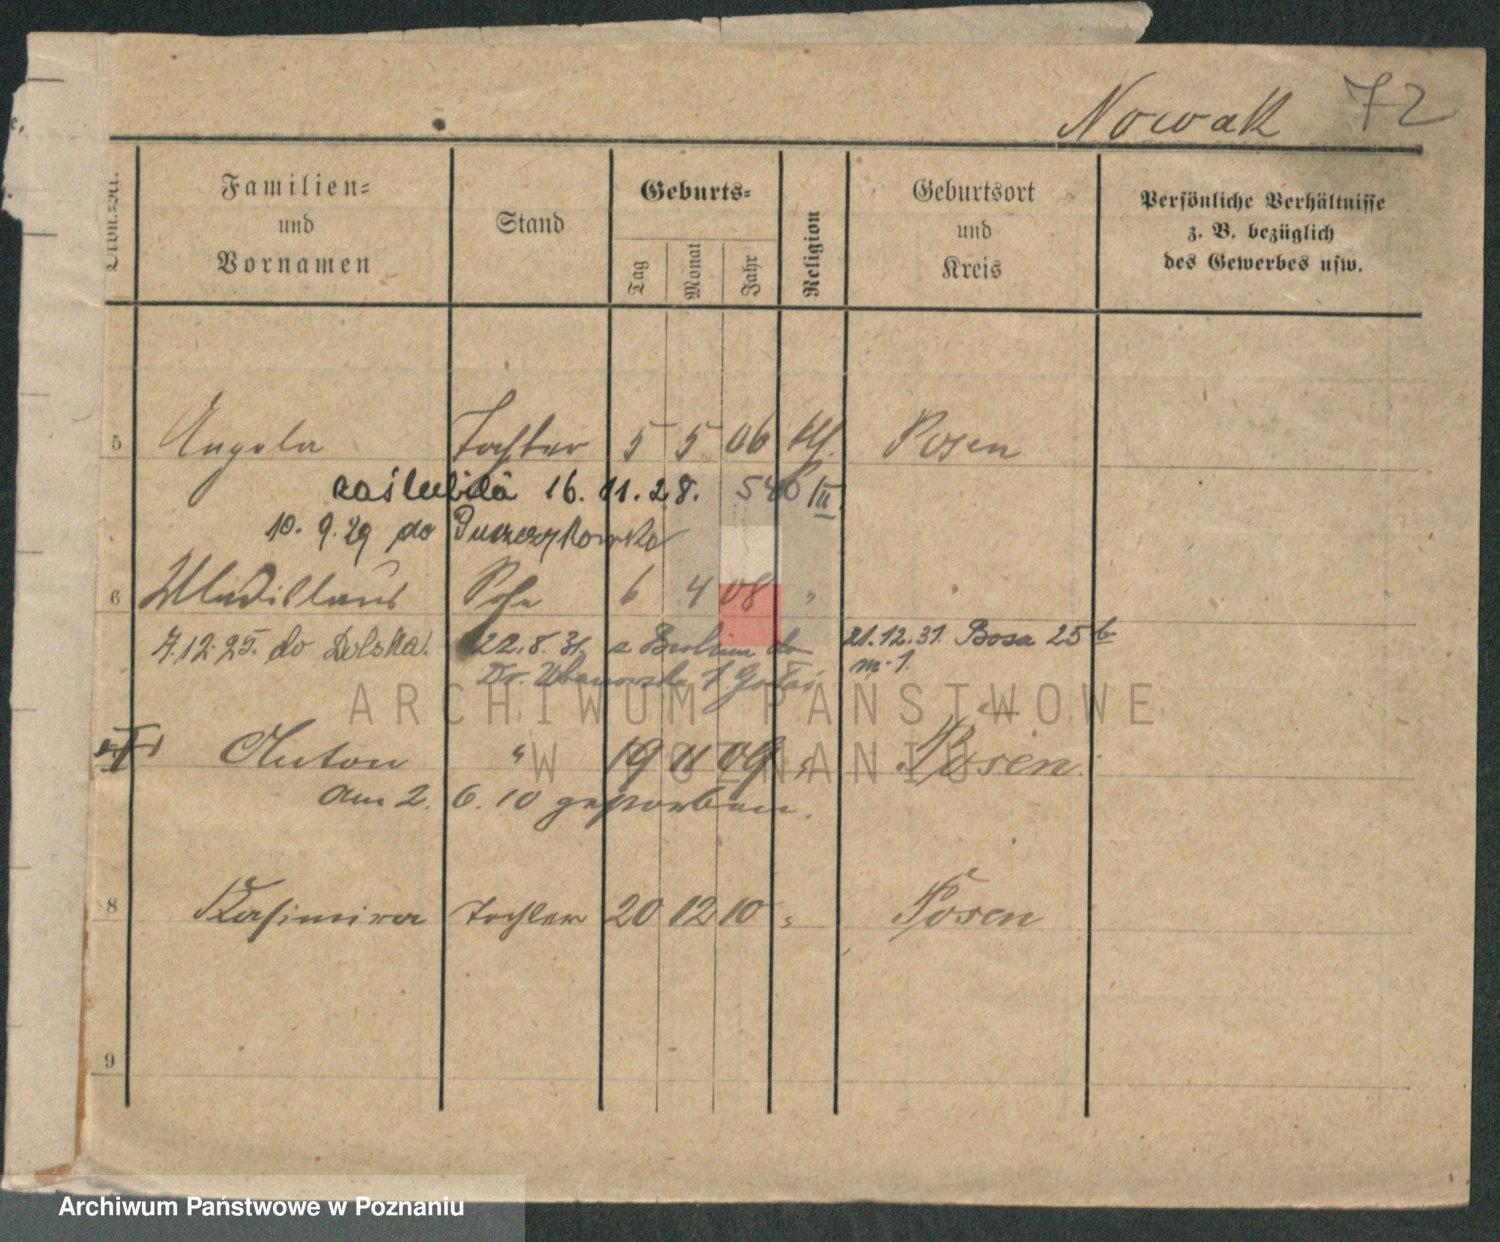 Nowak 72
Familien=
und
Vornamen
Stand
Geburts=
Tag
Monat
Jahr
Religion
Geburtsort
und
Kreis
Persönliche Verhältnisse
z. B. bezüglich
des Gewerbes usw.
5 Angela Tochter 5 5 06 kth. Posen
zaślubiła 16.11.28. 540/III.
10.9.29 do Puszczykowka
6 Wladislaus Sohn 6 4 08 "
7.12.25. do Dolska. 22.8.31. z Berlina do 21.12.31. Bosa 25b
Dr. m. 1.
Anton " 19 11 09 " Posen
am 2. 6. 10 gestorben.
8 Kasimira Tochter 20 12 10 " Posen
9
ARCHIWUM PAŃSTWOWE
W POZNANIU
Archiwum Państwowe w Poznaniu